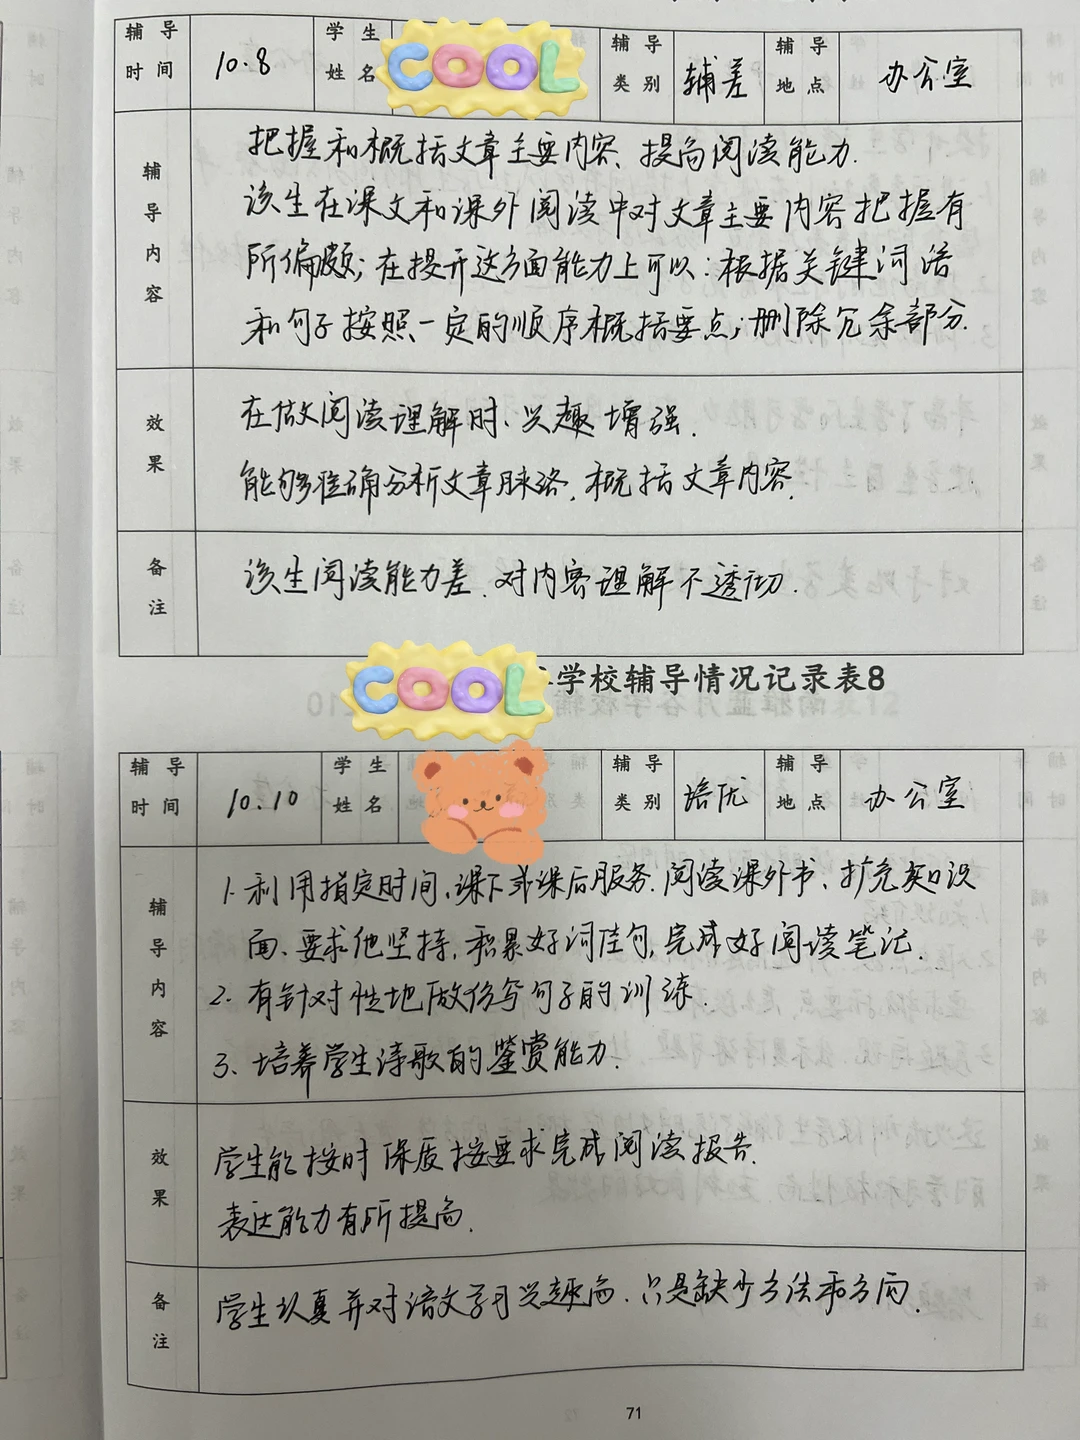 辅导时间 10.8 学生姓名 COOL 辅导类别 辅差 辅导地点 办公室
辅导内容
把握和概括文章主要内容、提高阅读能力.
该生在课文和课外阅读中对文章主要内容把握有
所偏颇;在提升这方面能力上可以:根据关键词语
和句子按照一定的顺序概括要点;删除冗余部分.
效果
在做阅读理解时、兴趣增强.
能够准确分析文章脉络.概括文章内容.
备注
该生阅读能力差.对内容理解不透彻.
COOL 学校辅导情况记录表8
辅导时间 10.10 学生姓名 辅导类别 培优 辅导地点 办公室
辅导内容
1.利用指定时间、课下或课后服务.阅读课外书、扩充知识
面、要求他坚持,积累好词佳句,完成好阅读笔记.
2.有针对性地做仿写句子的训练.
3、培养学生诗歌的鉴赏能力.
效果
学生能按时保质按要求完成阅读报告.
表达能力有所提高.
备注
学生认真并对语文学习兴趣高.只是缺少方法和方向.
71